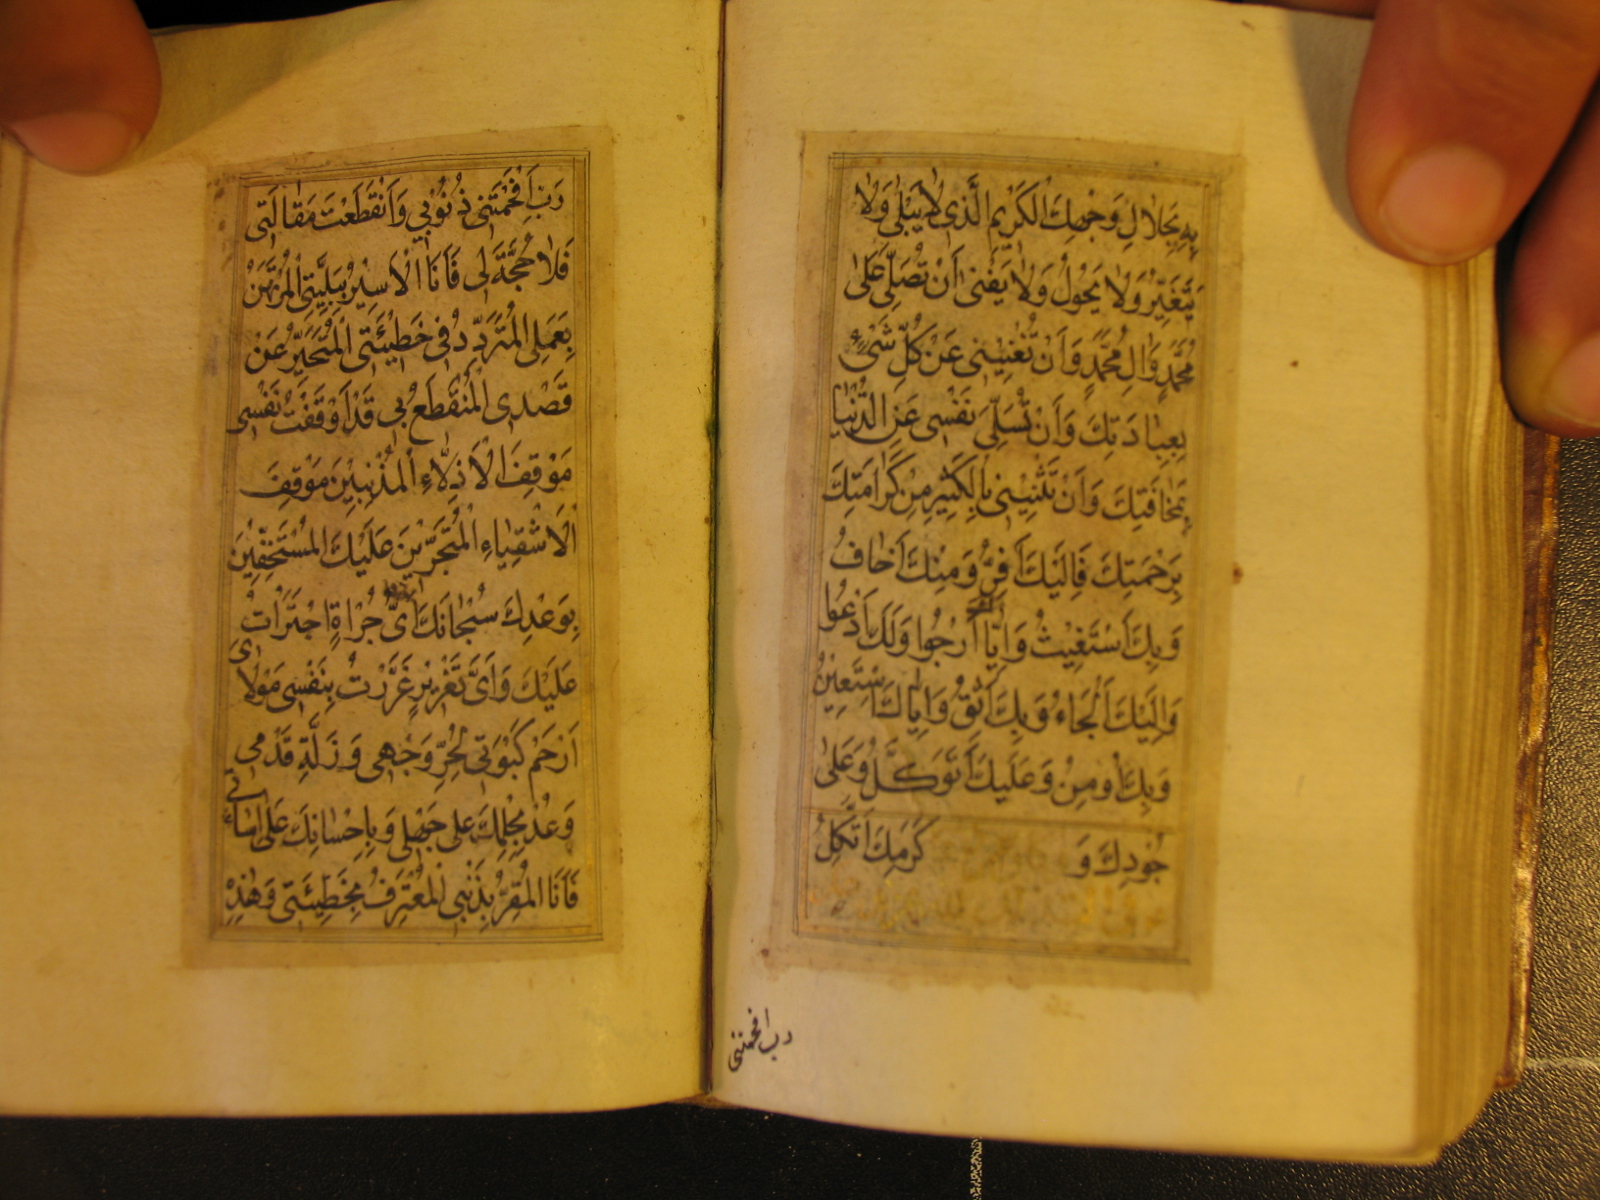 بِهِ بِجَلَالِ وَجْهِكَ الْكَرِيمِ الَّذِى لَا يَبْلىٰ وَلَا
يَتَغَيَّرُ وَلَا يَحُولُ وَلَا يَفْنىٰ اَنْ تُصَلِّىَ عَلىٰ
مُحَمَّدٍ وَاٰلِ مُحَمَّدٍ وَاَنْ تُغْنِيَنِى عَنْ كُلِّ شَىْءٍ
بِعِبَادَتِكَ وَاَنْ تُسَلِّىَ نَفْسِى عَنِ الدُّنْيَا
بِمَخَافَتِكَ وَاَنْ تُثْنِيَنِى بِالْكَثِيرِ مِنْ كَرَامَتِكَ
بِرَحْمَتِكَ فَاِلَيْكَ اَفِرُّ وَمِنْكَ اَخَافُ
وَبِكَ اَسْتَغِيثُ وَاِيَّاكَ اَرْجُوا وَلَكَ اَدْعُوا
وَاِلَيْكَ اَلْجَاءُ وَبِكَ اَثِقُ وَاِيَّاكَ اَسْتَعِينُ
وَبِكَ اُومِنُ وَعَلَيْكَ اَتَوَكَّلُ وَعَلىٰ
جُودِكَ وَ كَرَمِكَ اَتَّكِلُ
رب افحمتنى
رَبِّ اَفْحَمَتْنِى ذُنُوبِي وَاَنْقَطَعَتْ مَقَالَتِى
فَلَا حُجَّةَ لِى فَاَنَا الْاَسِيرُ بِبَلِيَّتِى الْمُرْتَهَنُ
بِعَمَلِى الْمُتَرَدِّدُ فِى خَطِيئَتِى الْمُتَحَيِّرُ عَنْ
قَصْدِى الْمُنْقَطَعُ بِى قَدْ اَوْقَفْتُ نَفْسِى
مَوْقِفَ الْاَذِلَّاءِ الْمُذْنِبِينَ مَوْقِفَ
الْاَشْقِيَاءِ الْمُتَجَرِّينَ عَلَيْكَ الْمُسْتَخِفِّينَ
بِوَعْدِكَ سُبْحَانَكَ اَىَّ جُرْاَةٍ اجْتَرَاْتُ
عَلَيْكَ وَاَىَّ تَغْرِيرٍ غَرَّرْتُ بِنَفْسِى مَوْلَاى
اَرْحَمْ كَبْوَتِى لِحُرِّ وَجْهِى وَزَلَّةِ قَدَمِى
وَعُدْ بِحِلْمِكَ عَلى جَهْلِى وَبِاِحْسَانِكَ عَلى اِسَاءَتِى
فَاَنَا الْمُقِرُّ بِذَنْبِى الْمُعْتَرِفُ بِخَطِيئَتِى وَهٰذِهِ